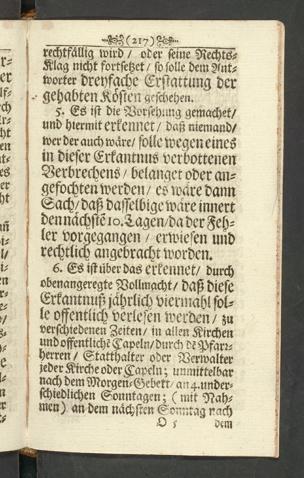 (217)
rechtfällig wird / oder seine Rechts-
Klag nicht fortsetzet / so solle dem Ant-
worter dreyfache Erstattung der
gehabten Kösten geschehen.
5. Es ist die Vorsehung gemachet /
und hiermit erkennet / daß niemand /
wer der auch wäre / solle wegen eines
in dieser Erkantnus verbottenen
Verbrechens / belanget oder an-
gefochten werden / es wäre dann
Sach / daß dasselbige wäre innert
den nächstẽ 10. Tagen / da der Feh-
ler vorgegangen / erwiesen und
rechtlich angebracht worden.
6. Es ist über das erkennet / durch
obenangeregte Vollmacht / daß diese
Erkantnuß jährlich viermahl sol-
le öffentlich verlesen werden / zu
verschiedenen Zeiten / in allen Kirchen
und öffentlichẽ Capeln / durch dẽ Pfarr-
herren / Statthalter oder Verwalter
jeder Kirche oder Capeln; unmittelbar
nach dem Morgen-Gebett / an 4. under-
schiedlichen Sonntagen; (mit Nah-
men) an dem nächsten Sonntag nach
O 5 dem